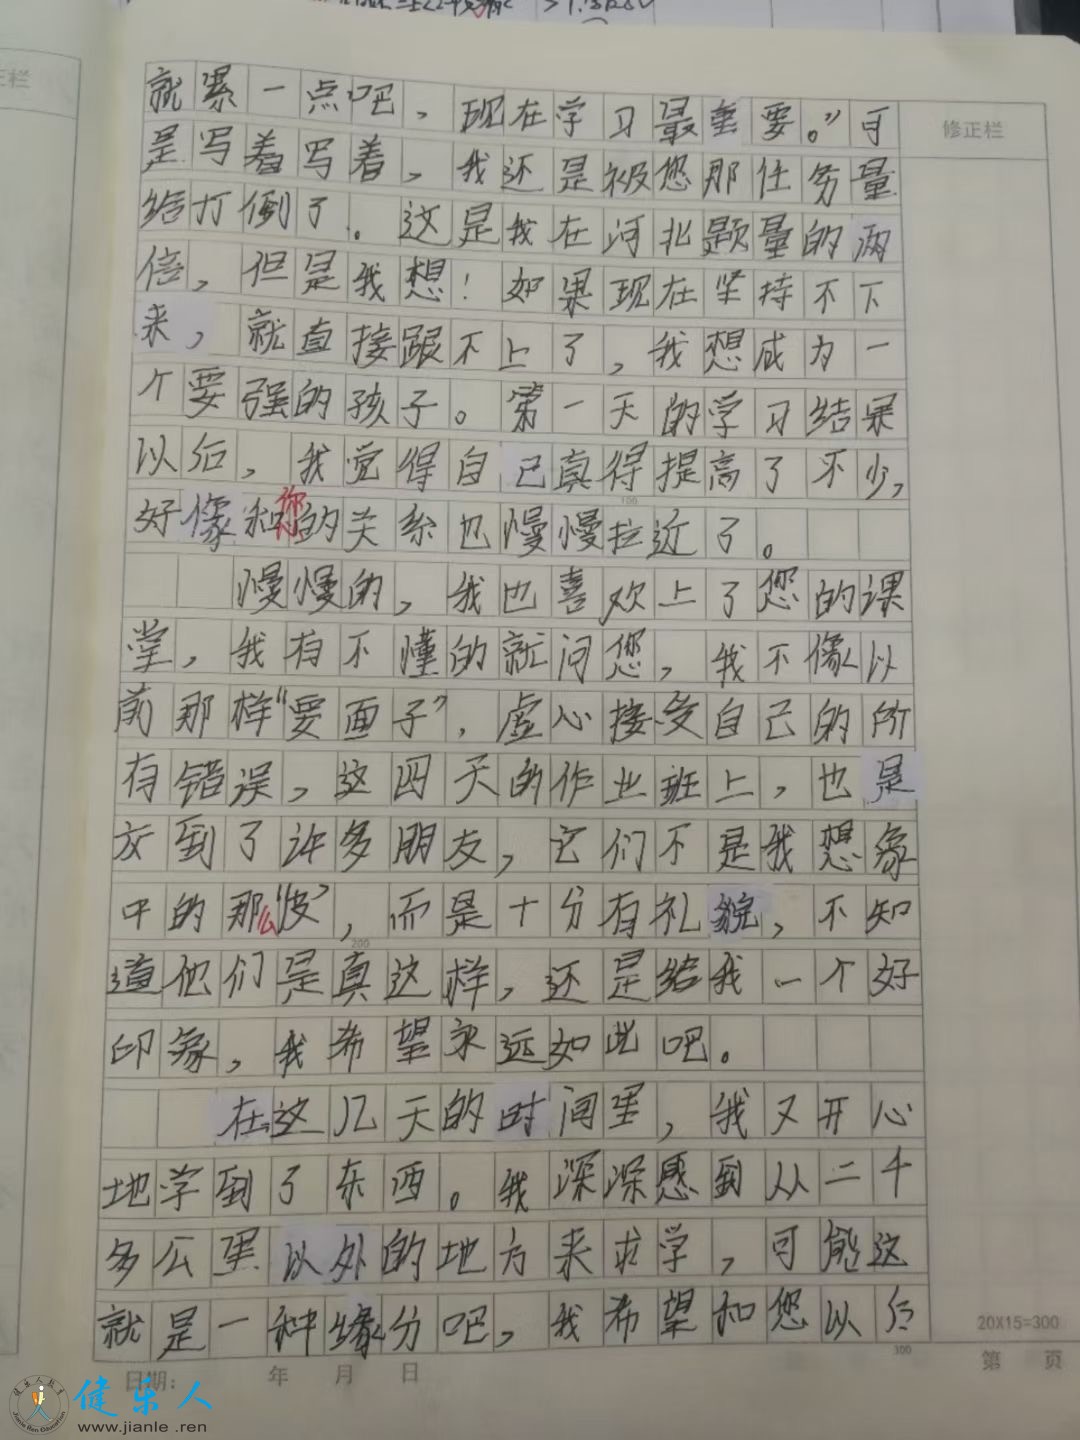 正栏
就累一点吧，现在学习最重要。”可
修正栏
是写着写着，我还是被您那任务量
给打倒了。这是我在河北题量的两
倍，但是我想！如果现在坚持不下
来，就直接跟不上了，我想成为一
个要强的孩子。第一天的学习结果
以后，我觉得自己真得提高了不少，
100
好像和你们的关系也慢慢拉近了。
慢慢的，我也喜欢上了您的课
堂，我有不懂的就问您，我不像以
前那样“要面子”，虚心接受自己的所
有错误，这四天的作业班上，也是
交到了许多朋友，它们不是我想象
中的那么“皮”，而是十分有礼貌，不知
200
道他们是真这样，还是给我一个好
印象，我希望永远如此吧。
在这几天的时间里，我又开心
地学到了东西。我深深感到从二千
多公里以外的地方来求学，可能这
就是一种缘分吧，我希望和您以后
20X15=300
300
日期： 年 月 日
第 页
健乐人教育
Jianle Ren Education
健乐人
www.jianle .ren